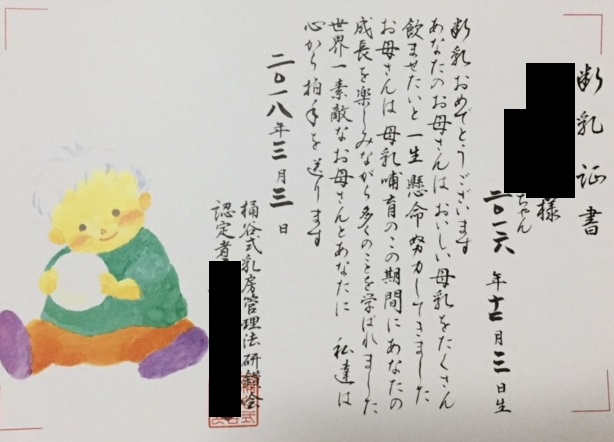 断乳証書
様
ちゃん
二〇一六年十一月三日生
断乳おめでとうございます
あなたのお母さんはおいしい母乳をたくさん
飲ませたいと一生懸命努力してきました
お母さんは母乳哺育のこの期間にあなたの
成長を楽しみながら多くのことを学ばれました
世界一素敵なお母さんとあなたに 私達は
心から拍手を送ります
二〇一八年三月三日
桶谷式乳房管理法研鑽会
認定者